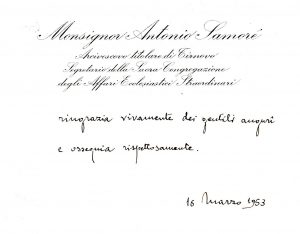 Monsignor Antonio Samorè
Arcivescovo titolare di Tirnovo
Segretario della Sacra Congregazione
degli Affari Ecclesiastici Straordinari
ringrazia vivamente dei gentili auguri
e ossequia rispettosamente.
16 Marzo 1953